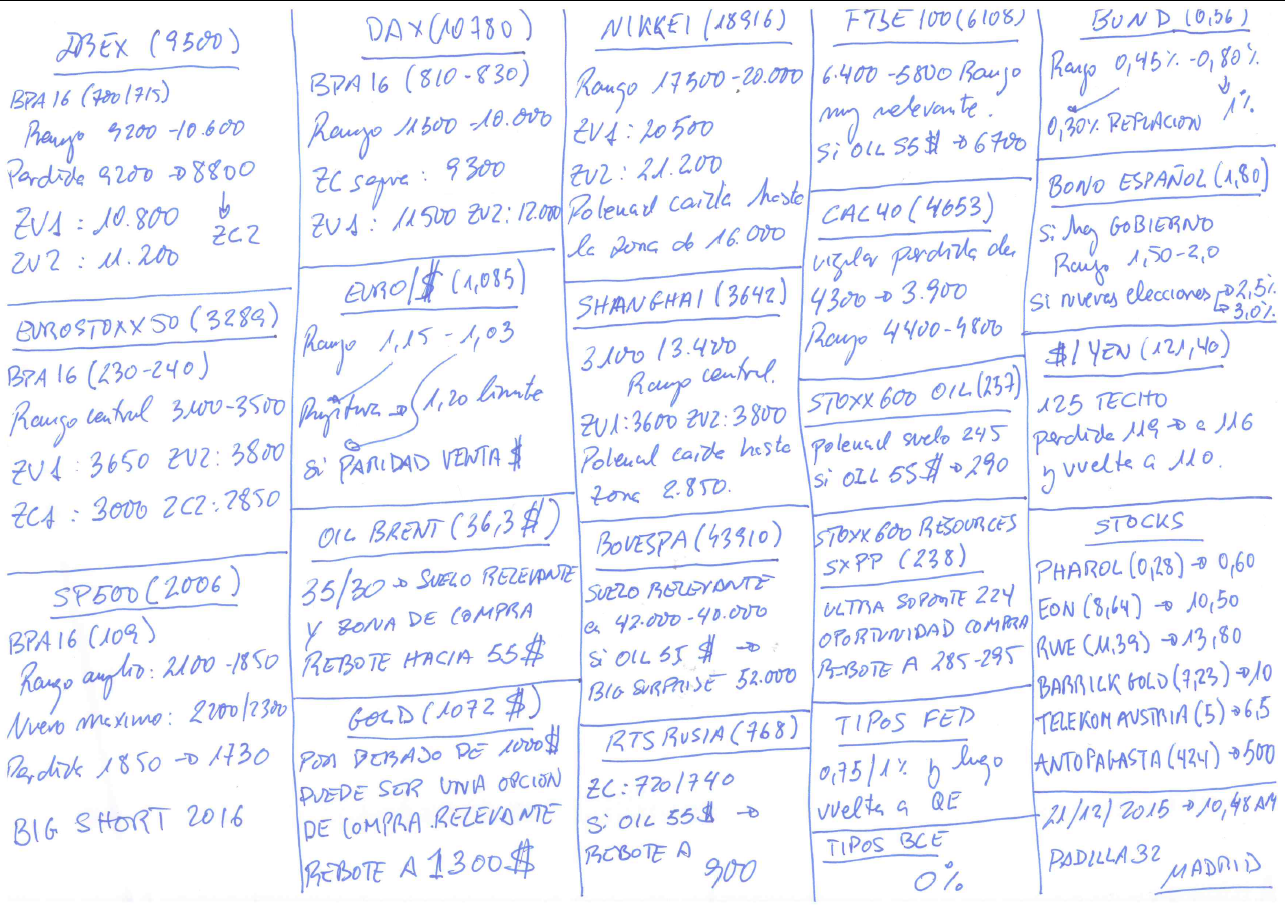 IBEX (9500)
BPA 16 (700/715)
Rango 9200-10.600
Perdida 9200 → 8800
ZV1 : 10.800 ↓ ZC2
ZV2 : 11.200
EUROSTOXX50 (3289)
BPA 16 (230-240)
Rango central 3100-3500
ZV1 : 3650 ZV2: 3800
ZC1 : 3000 ZC2: 2850
SP500 (2006)
BPA16 (109)
Rango amplio: 2100-1850
Nuevo maximo: 2200/2300
Perdida 1850 → 1730
BIG SHORT 2016
DAX (10780)
BPA 16 (810-830)
Rango 11500-10.000
ZC sagra: 9300
ZV1 : 11500 ZV2: 12.000
EURO/$ (1,085)
Rango 1,15-1,03
→ 1,20 limite
si PARIDAD VENTA $
OIL BRENT (36,3$)
35/30 → SUELO RELEVANTE
Y ZONA DE COMPRA
REBOTE HACIA 55$
GOLD (1072 $)
POR DEBAJO DE 1000$
PUEDE SER UNA OPCION
DE COMPRA RELEVANTE
REBOTE A 1300$
NIKKEI (18916)
Rango 17500-20.000
ZV1 : 20500
ZV2 : 21.200
Potencial caida hasta
la zona de 16.000
SHANGHAI (3642)
3100/3.400
Rango central.
ZV1:3600 ZV2: 3800
Potencial caida hasta
zona 2.850.
BOVESPA (43910)
SUELO RELEVANTE
en 42.000-40.000
Si OIL 55 $ →
BIG SURPRISE 52.000
RTS RUSIA (768)
ZC: 720/740
Si OIL 55$ →
REBOTE A
900
FTSE 100 (6108)
6.400-5800 Rango
muy relevante.
Si OIL 55$ → 6700
CAC40 (4653)
vigilar perdida de
4300 → 3.900
Rango 4400-4800
STOXX600 OIL (237)
potencial suelo 245
si OIL 55$ → 290
STOXX600 RESOURCES
SXPP (238)
ULTRA SOPORTE 224
OPORTUNIDAD COMPRA
REBOTE A 285-295
TIPOS FED
0,75/1% y luego
vuelta a QE
TIPOS BCE
0%
BUND (0,56)
Rango 0,45% -0,80%
↓
0,30% REFLACION 1%
BONO ESPAÑOL (1,80)
Si hay GOBIERNO
Rango 1,50-2,0
Si nuevas elecciones → 2,5%
→ 3,0%
$/YEN (121,40)
125 TECHO
perdida 119 → a 116
y vuelta a 110.
STOCKS
PHAROL (0,28) → 0,60
EON (8,64) → 10,50
RWE (11,39) → 13,80
BARRICK GOLD (7,23) → 10
TELEKOM AUSTRIA (5) → 6,5
ANTOFAGASTA (424) → 500
21/12/2015 → 10,48 AM
PADILLA 32
MADRID